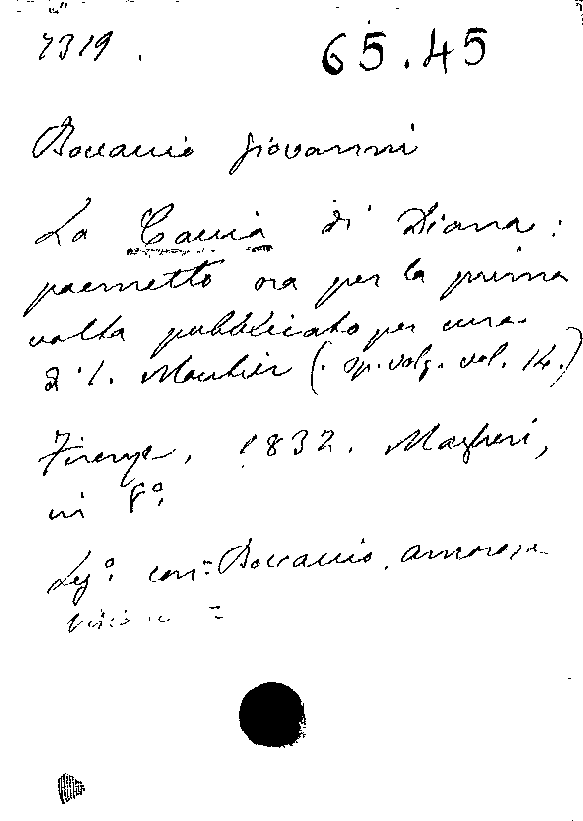 7319. 65.45
Boccaccio Giovanni
La Caccia di Diana:
poemetto ora per la prima
volta pubblicato per cura
d'I. Moutier (. op. volg. vol. 14.)
Firenze, 1832. Magheri,
in 8°.
Leg° con = Boccaccio, amorosa
visione =